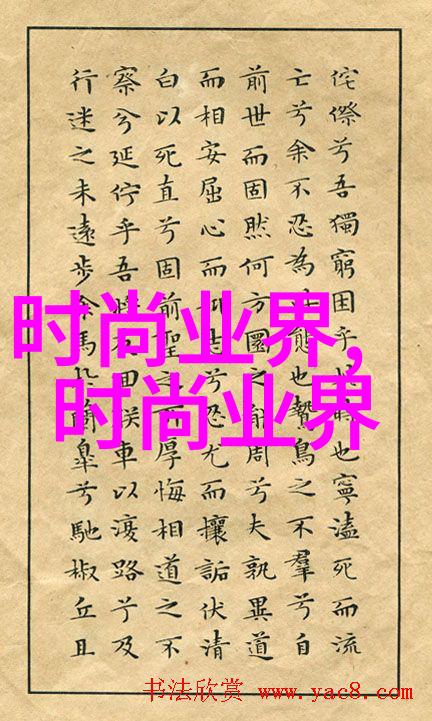 侘傺兮吾獨窮困乎也寧溘死而流
亡兮余不忍為態也鷙鳥之不羣兮自
前世而固然何方圜之能周兮夫孰異道
而相安屈心而抑志兮忍尤而攘詬伏清
白以死直兮固前聖之厚悔相道之不
察兮延佇乎吾將回朕車以復路兮及
行迷之未遠步余馬於蘭皋兮馳椒丘且
时尚业界,
时尚业界
书法欣赏 www.yac8.com